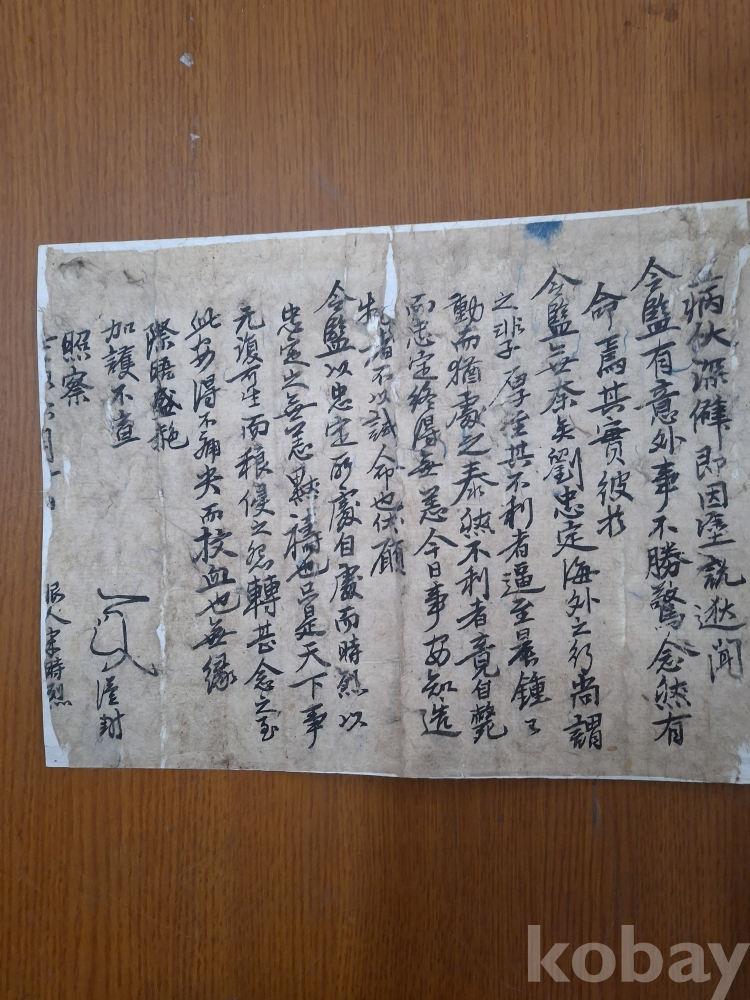 病伏深僻即因塗說逖聞
令監有意外事不勝驚念然有
命焉其實彼於
令監無奈矣劉忠定海外之行尚謂
之非孚厚誣其不利者逼至晨鍾已
動而猶處之泰然不利者竟自斃
而忠定終得無恙今日事安知造
不以試命也伏願
令監以忠定所處自處而時烈以
忠定之無恙默禱也只是天下事
无復可生而粮侵之怨轉甚念之至
此安得不痛哭而抆血也無緣
際晤
加護不宣
照察
謹封
宋時烈
kobay